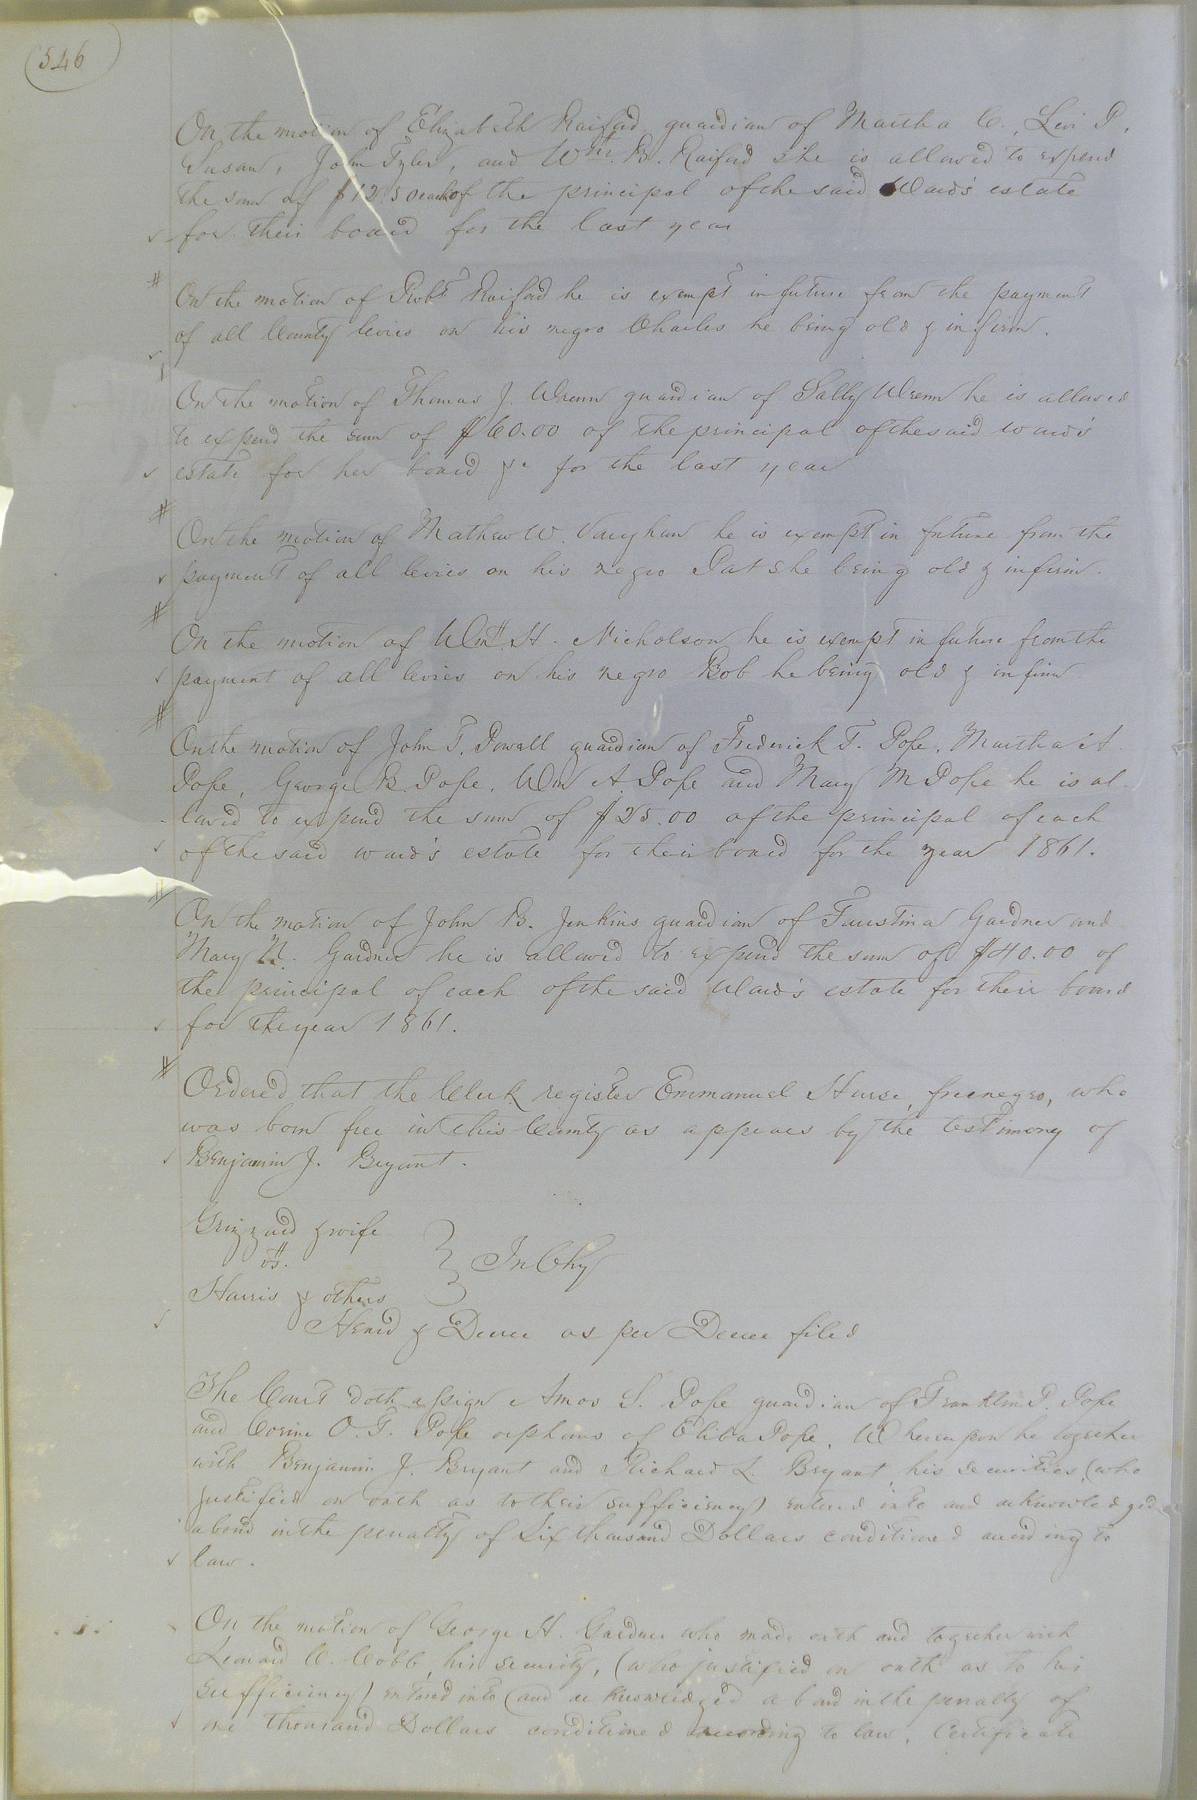 546
On the motion of Elizabeth Raiford guardian of Martha C., Levi P.,
Susan, John Tyler, and Wm. B. Raiford she is allowed to expend
the sum of $12.50 each of the principal of the said Ward's estate
for their board for the last year
On the motion of Robt Raiford he is exempt in future from the payment
of all County levies on his negro Charles he being old & infirm.
On the motion of Thomas J. Wrenn guardian of Sally Wrenn he is allowed
to expend the sum of $60.00 of the principal of the said ward's
estate for her board &c for the last year
On the motion of Mathew W. Vaughan he is exempt in future from the
payment of all levies on his negro Pat she being old & infirm.
On the motion of Wm. H. Nicholson he is exempt in future from the
payment of all levies on his negro Bob he being old & infirm
On the motion of John T. Powell guardian of Frederick F. Pope, Martha A
Pope, George B. Pope, Wm A Pope and Mary M Pope he is al
lowed to expend the sum of $25.00 of the principal of each
of the said ward's estate for their board for the year 1861.
On the motion of John B. Jenkins guardian of Faustina Gardner and
Mary N. Gardner he is allowed to expend the sum of $40.00 of
the principal of each of the said Ward's estate for their board
for the year 1861.
Ordered that the Clerk register Emmanuel Hurse, free negro, who
was born free in this County as appears by the testimony of
Benjamin J. Bryant.
Grizzard & wife
vs. } In Chy
Harris & others
Heard & Decree as per Decree filed
The Court doth assign Amos S. Pope guardian of Franklin P. Pope
and Corine O. T. Pope orphans of Pope, Whereupon he together
with Benjamin J. Bryant and Richard L. Bryant his securities (who
justified on oath as to their sufficiency) entered into and acknowledged
a bond in the penalty of Six thousand Dollars conditioned according to
law.
On the motion of George H. Gardner who made oath and together with
Leonard C. Cobb, his security, (who justified on oath as to his
sufficiency) entered into (and acknowledged a bond in the penalty of
one thousand Dollars conditioned according to law. Certificate